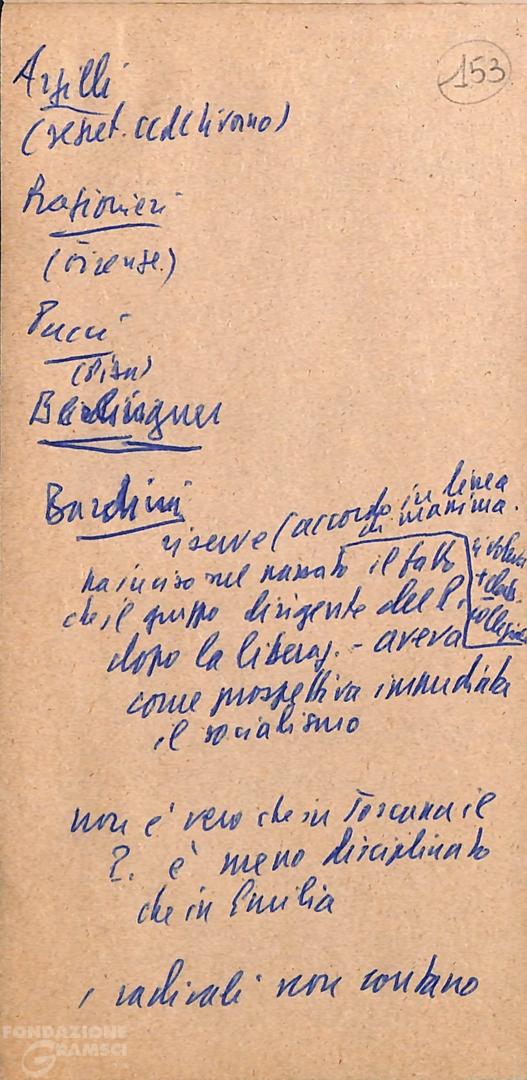 153
Argilli
(segret. CCdL Livorno)
Ragionieri
(Firenze)
Pucci
(Pisa)
Berlinguer
Bardini
riserve (accordo in linea
di massima.
ha inciso nel passato il fatto
che il gruppo dirigente del P.
dopo la liberaz. - aveva
come prospettiva immediata
il socialismo
non è vero che in Toscana il
P. è meno disciplinato
che in Emilia
i radicali non contano
FONDAZIONE
GRAMSCI